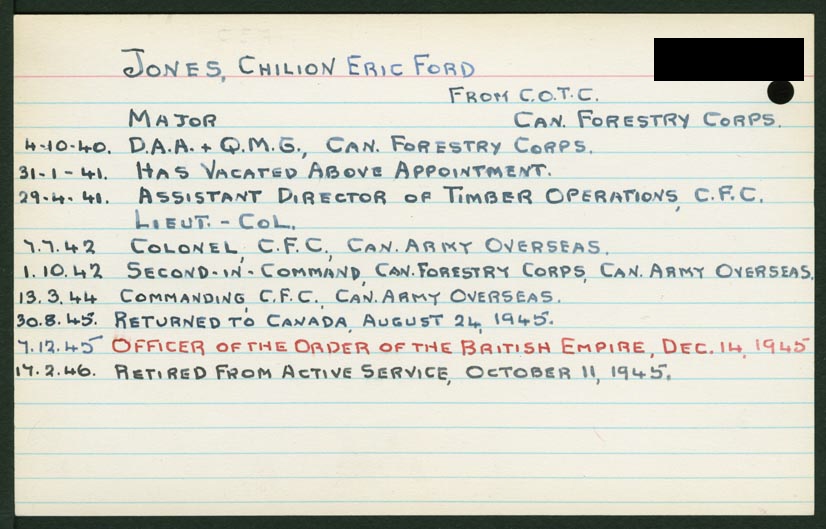 JONES, CHILION ERIC FORD
FROM C.O.T.C.
MAJOR CAN. FORESTRY CORPS.
4-10-40. D.A.A. + Q.M.G., CAN. FORESTRY CORPS.
31-1-41. HAS VACATED ABOVE APPOINTMENT.
29-4-41. ASSISTANT DIRECTOR OF TIMBER OPERATIONS, C.F.C.
LIEUT.-COL.
7.7.42 COLONEL, C.F.C., CAN. ARMY OVERSEAS.
1.10.42 SECOND-IN-COMMAND, CAN. FORESTRY CORPS, CAN. ARMY OVERSEAS.
13.3.44 COMMANDING, C.F.C., CAN. ARMY OVERSEAS.
30.8.45. RETURNED TO CANADA, AUGUST 24, 1945.
7.12.45 OFFICER OF THE ORDER OF THE BRITISH EMPIRE, DEC. 14, 1945
17.2.46. RETIRED FROM ACTIVE SERVICE, OCTOBER 11, 1945.